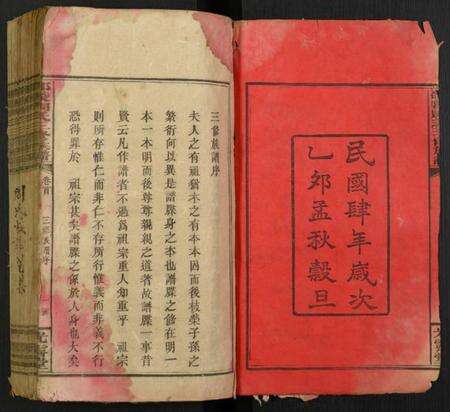 民國肆年歲次
乙夘孟秋穀旦
三修族譜序
夫人之有祖猶木之有本本固而後枝榮子孫之
繁衍何以異是譜牒身之本也譜牒之修在明一
本一本明而後尊尊親親之道著故譜牒一事昔
賢云凡作譜者不過為祖宗重人知重乎 祖宗
則所存惟仁而非仁不存所行惟義而非義不行
恐得罪於 祖宗甚矣譜牒之係於人身也大矣
卷首
三修族譜序